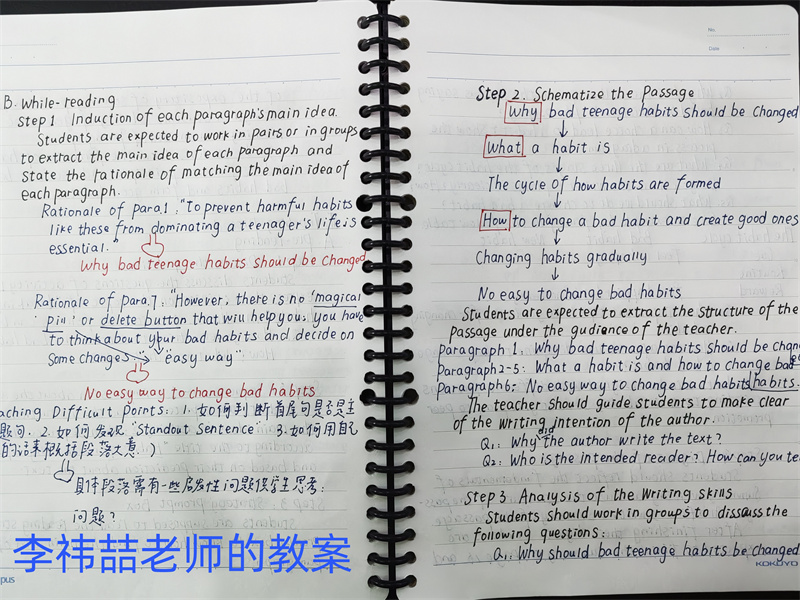 B. While-reading
Step 1 Induction of each paragraph's main idea.
Students are expected to work in pairs or in groups
to extract the main idea of each paragraph and
state the rationale of matching the main idea of
each paragraph.
Rationale of para.1: "To prevent harmful habits
like these from dominating a teenager's life is
essential."
Why bad teenage habits should be changed
Rationale of para.7: "However, there is no 'magical
pill' or delete button that will help you; you have
to think about your bad habits and decide on
some changes
"easy way"
No easy way to change bad habits
aching Difficult Points: 1. 如何判断首尾句是否是主
题句. 2. 如何发现 "Standout Sentence" 3. 如何用自己
的话来概括段落大意.)
具体段落需有一些启发性问题供学生思考:
问题?
李祎喆老师的教案
pus
No.
Date
Step 2. Schematize the Passage
Why bad teenage habits should be changed
What a habit is
The cycle of how habits are formed
How to change a bad habit and create good ones
Changing habits gradually
No easy to change bad habits
Students are expected to extract the structure of the
passage under the gudience of the teacher.
Paragraph 1: Why bad teenage habits should be chan
Paragraph 2-5: What a habit is and how to change bad
Paragraph 6: No easy way to change bad habits habits.
The teacher should guide students to make clear
of the writing intention of the author.
Q1: Why did the author write the text?
Q2: Who is the intended reader? How can you te
Step 3 Analysis of the Writing Skills
Students should work in groups to disscuss the
following questions:
Q1: Why should bad teenage habits be changed
KOKUYO